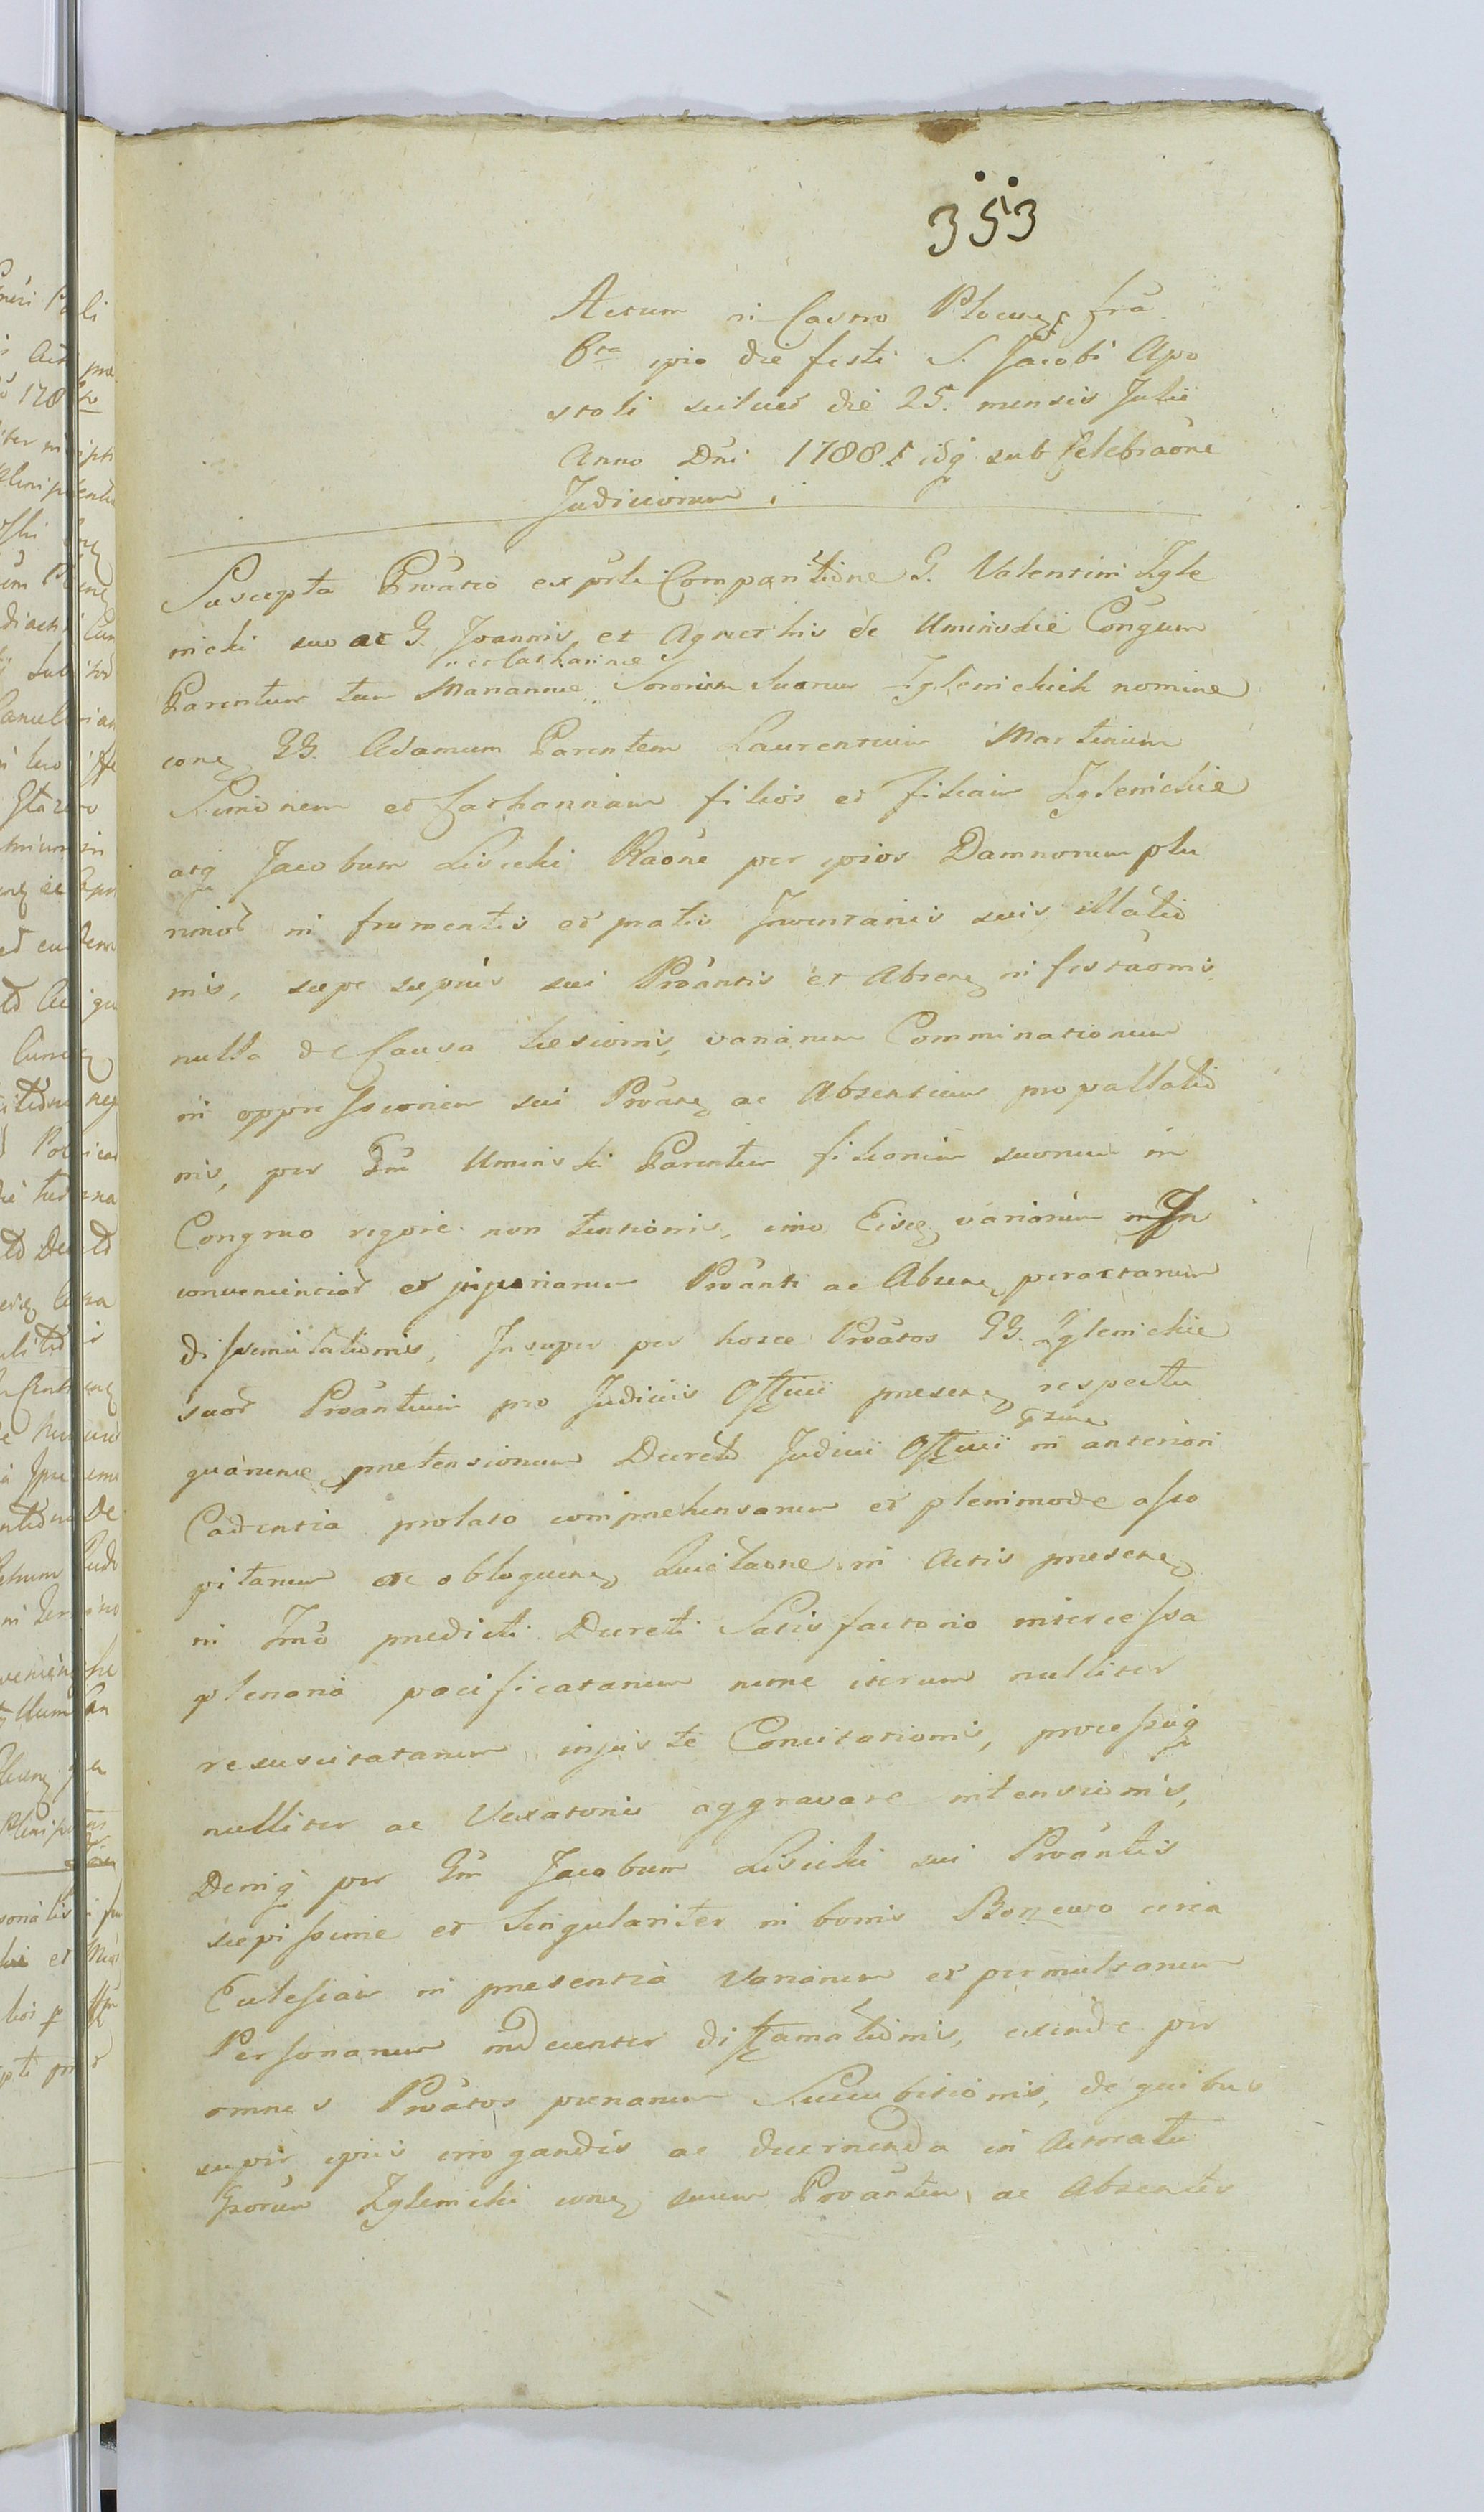 353
Actum in Castro Plocen fra
6ta ipso die festi S. Jacobi Apo
stoli scilicet die 25. mensis Julii
Anno Dni 1788 idq sub Celebraone
Judiciorum.
Suscepta Protatio ex psti Comparitione G. Valentini Zgle
nicki suo ac G. Joannis et Agnethis de Uminskie Congum
et Catharinae
Parentum tum Mariannae Sororum Suarum Zglenickich nomine
con GG. Adamum Parentem Laurentium Martinum
Simonem et Catharinam filios et filiam Zglenickie
atq Jacobum Lisicki Raone per ipsos Damnorum plu
rimor in frumentis et pratis Inventariis suis illatio
nis, saepe saepius sui Protantis et Absen infestaonis
nulla de Causa laesionis, variarum Comminationum
in oppressionem sui Protan ac Absentium propallatio
nis, per Gm Uminski Parentem filiorum suorum in
Congruo rigore non tentionis, imo Eisd variorum In
convenientiar et injuriarum Protanti ac Absen peractarum
dissimulationis, Insuper per hosce Protatos GG. Zglenickie
suor Protantium pro Judiciis Officii presen respectu
quarumc pretensionum Decreto Judicii Officii in anteriori
Cadentia prolato comprehensarum et plenimode asso
pitarum ac obloquen Quietaone in Actis presen
in Tmo predicti Decreti Satisfactorio intercessa
plenarie pacificatarum nunc iterum nulliter
resuscitatarum injuste Concitationis, processuq
nulliter ac Vexatorie aggravare intensionis,
Deniq per Gm Jacobum Lisicki sui Protantis
saepissime et Singulariter in bonis Bonewo circa
Ecclesiam in presentia variarum et permultarum
Personarum indecenter diffamationis, exinde per
omnes Protatos poenarum Succubitionis, de quibus
super ipsis irrogandis ac decernenda in Actoratu
Gsorum Zglenicki con suum Protantem ac Absentes